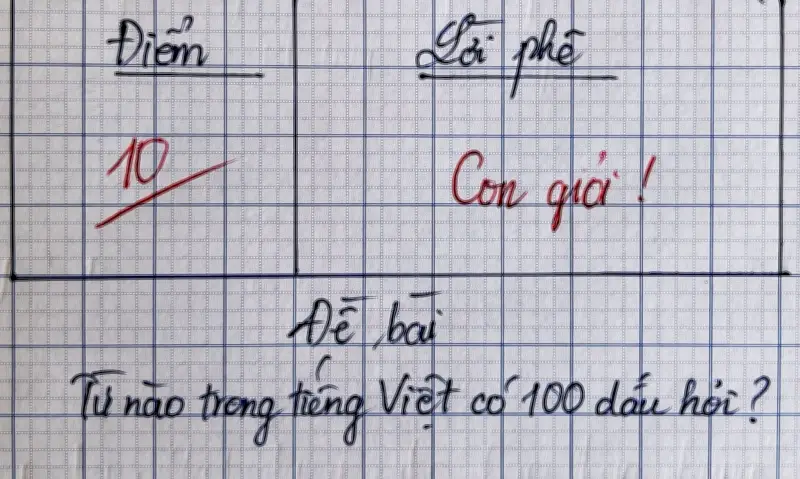 Điểm
Lời phê
10
Con giỏi!
Đề bài
Từ nào trong tiếng Việt có 100 dấu hỏi?